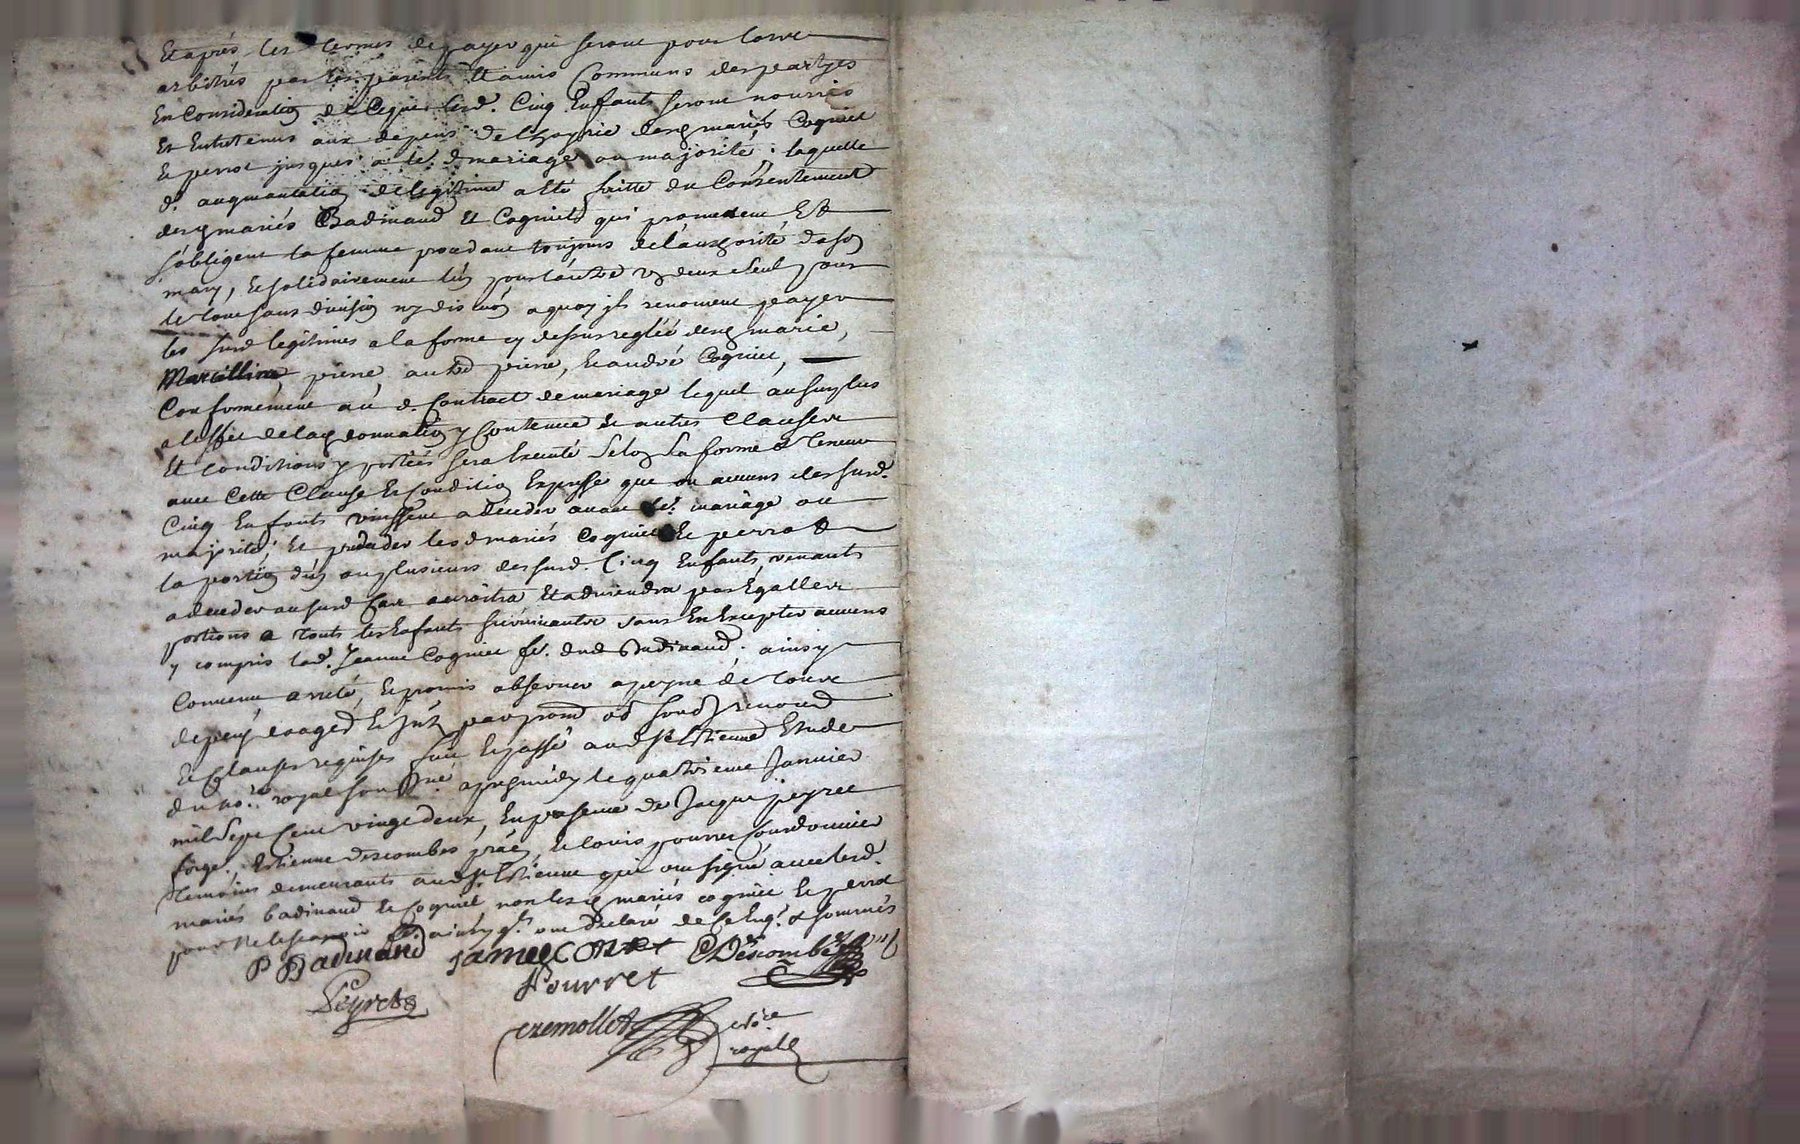 Et après les termes de payer qui seront pour lorre
arbitrés par les parents et amis Communs des partyes
En Consideration de Ceque lesd. Cinq Enfants seront nourris
Et Entretenus aux depens de mariés Cogniet
Et perrot jusques à le.r d mariage ou majorité; laquelle
d. augmentation de legitime a eté faitte du Consentement
desq mariés Badinand et Cogniet qui promettent Et
s'obligent la femme procedant toujours de l'authorité de son
mary, Et solidairement lun pour lautre un deux seul pour
le tout sans division ny a quoy ils renoncent payer
les susd legitimes a la forme cy dessus reglée marie,
Marcilline, pierre, autre pierre, Et andré Cogniet,
Conformement au d. Contract de mariage lequel au surplus
a leffet de lad donnation y Contenue Et autres Clauses
Et conditions y portées sera Executé selon sa forme & teneur
avec Cette Clause Et Condition Expresse que ou aucuns des susd.
Cinq Enfants vinssent a deceder avant le.r mariage ou
majorité, Et preceder les d mariés Cogniet Et perrot
la portion dun ou plusieurs des susd. Cinq Enfants venants
a deceder au susd Cas accroitra Et adviendra par Egalles
portions a touts les Enfants survivants sans En Excepter aucuns
y compris lad. Jeanne Cogniet fe. dud Badinand. ainsy
Convenu arreté, Et promis observer a peyne de toute
depens
Et Clauses requises fait Et passé aud St Estienne Etude
du no.re royal soussigné apres midy le quatrieme Janvier
mil sept Cent vingt deux, En presence de Jacque peyret
forge.r, Estienne descombes Et Louis pourret Cordonnier
temoins demeurants aud St Estienne qui ont signé avec lesd.
mariés badinand Et Cogniet non les mariés cogniet Et perrot
pour ne le scavoir ainsy qils ont declaré de Ce Enq.s & sommés
P Badinand Janneconet EDescombes
Peyret Pourret
cremollet no.re
royall